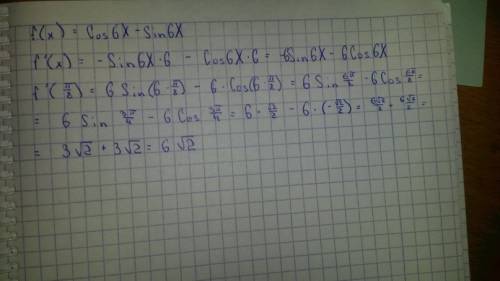 f(x) = Cos6X - Sin6X
f'(x) = -Sin6X·6 - Cos6X·6 = -6Sin6X - 6Cos6X
f'(π/8) = 6 Sin(6·π/8) - 6·Cos(6 π/8) = 6 Sin 6π/8 - 6 Cos 6π/8 =
= 6 Sin 3π/4 - 6 Cos 3π/4 = 6·√2/2 - 6·(-√2/2) = 6√2/2 + 6√2/2 =
= 3√2 + 3√2 = 6√2